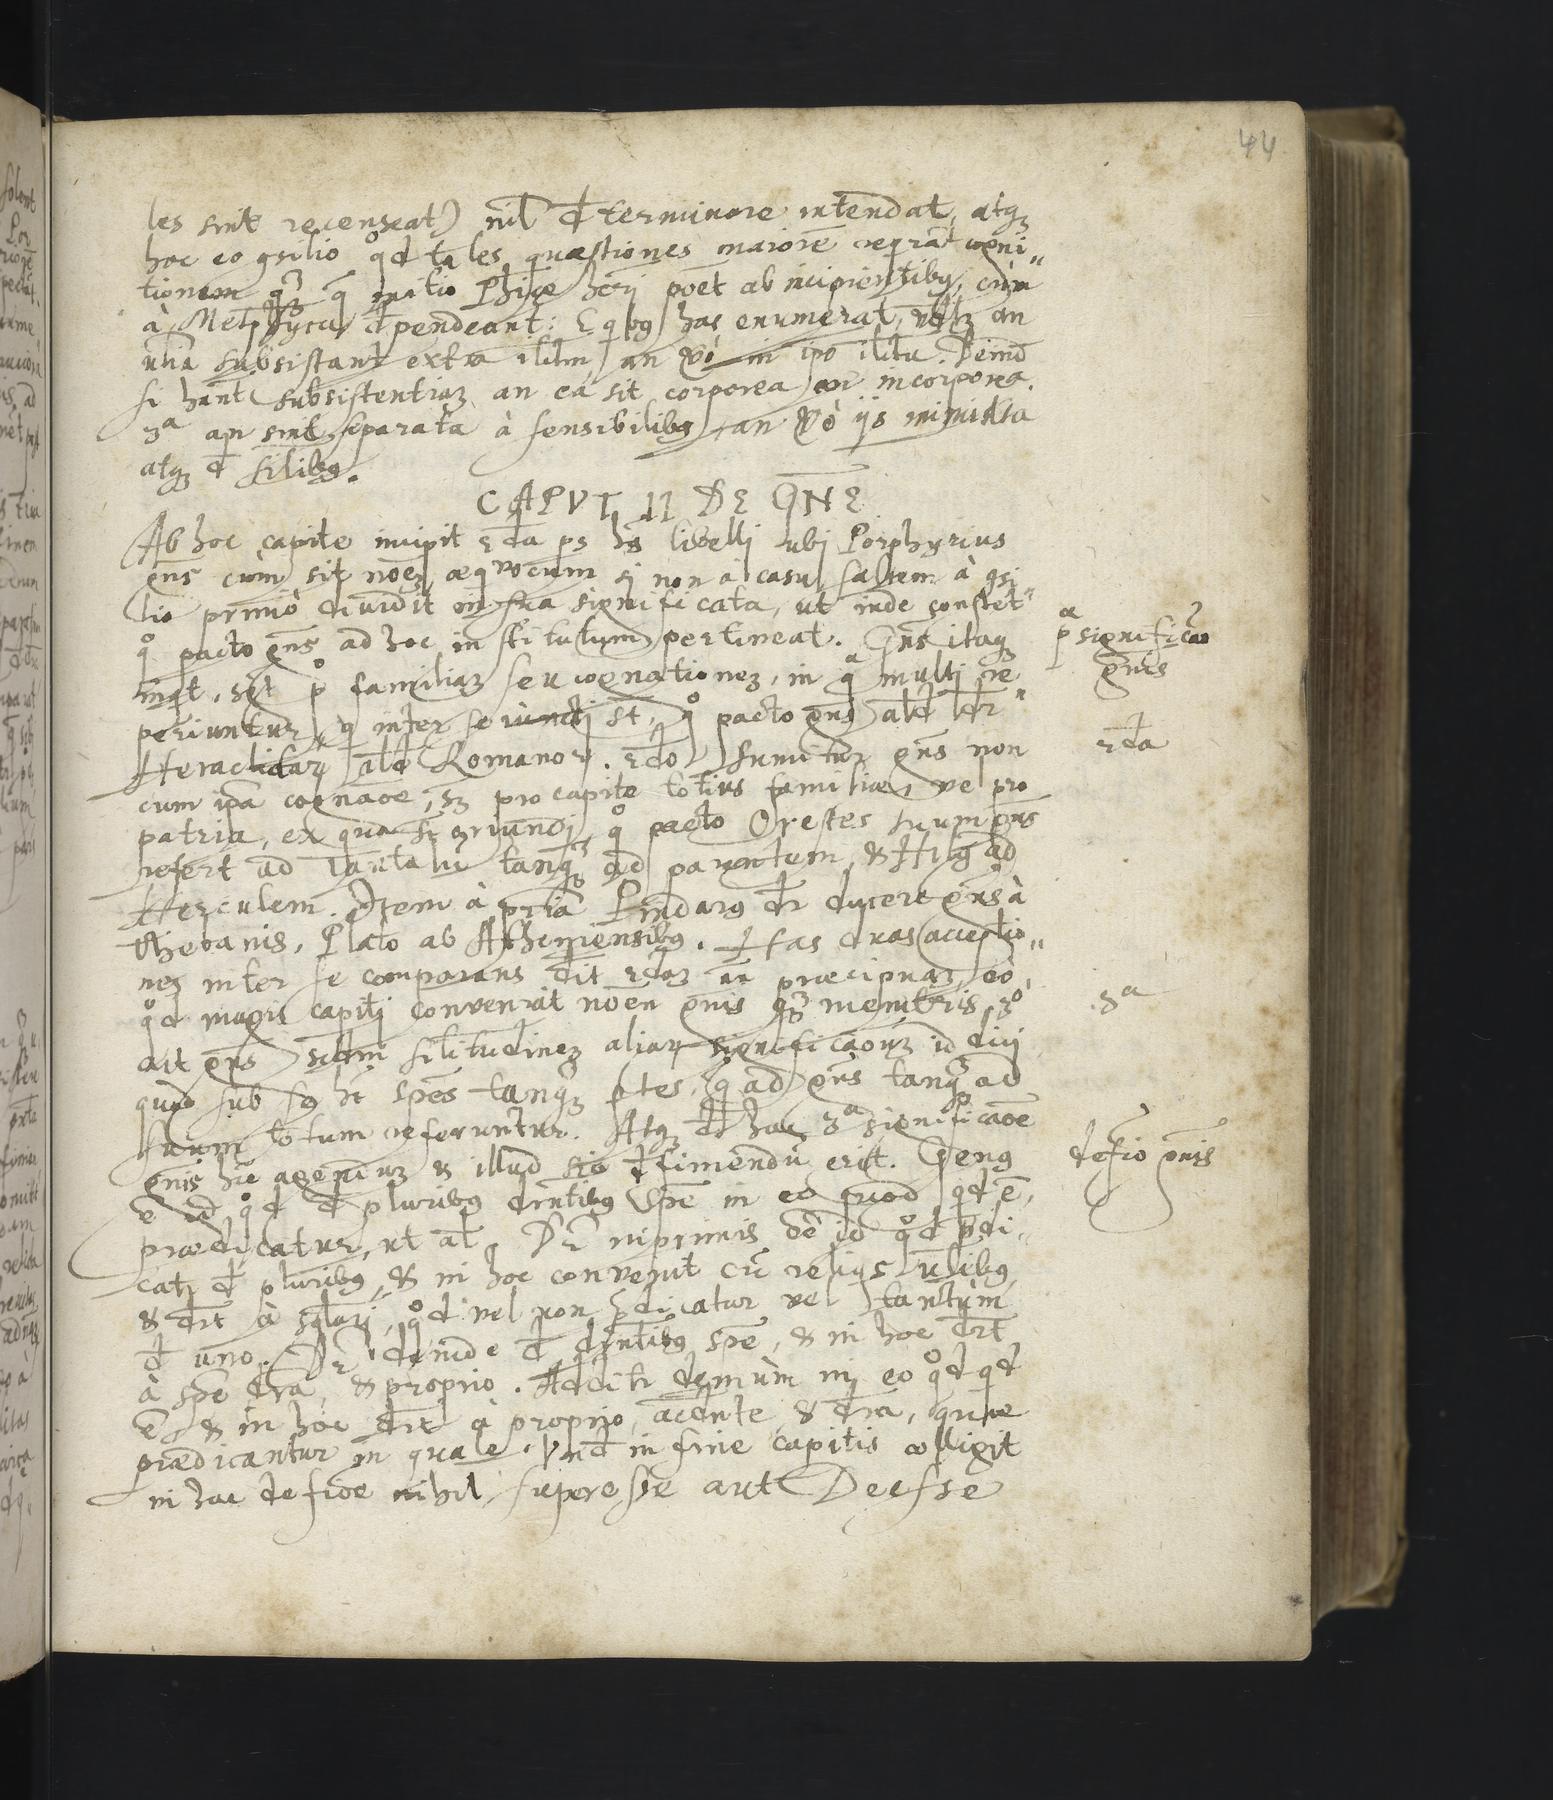 44
les sint recenseat) nil determinare intendat, atqꝫ
hoc eo ꝯsilio qd tales quæstiones maiorē reqrāt cogni"
tionem qꝫ q initio Phiæ heri poēt ab incipientibꝰ, cùm
à Metphysca dpendeant: E qibꝰ has enumerat, utꝫ an
ūlia subsistant extra iltm, an vò in ipo iltu. Deind
si hānt subsistentiaꝫ an ea sit corporea an incorporea.
3ᵃ an sint separata à sensibilibꝰ, an vò ijs
atqꝫ d silibꝰ.
CAPVT II DE GÑE
Ab hoc capite incipit 2da ps hꝰ libelli ubi Porphyrius
gn̄s cùm sit noēn æqvocum si non à casu saltem à ꝯsi"
lio primiò diuidit in sua significata, ut inde constet
qo pacto gn̄s ad hoc institutum pertineat. Gn̄s itaqꝫ
inqt, sgt p° familiaꝫ seu cognationeꝫ, in qᵃ multi re"
periuntur, q inter se iuncti st, qo pacto gn̄s ald dr
Heraclidaꝝ ald Romanoꝝ. 2do sumitur gn̄s non
cum ipa cognaoē, sꝫ pro capite totius familiæ, vel pro
patria, ex qua st oriundi, qo pacto Orestes suum gn̄s
refert ad Tantalū tanqꝫ ad parentem, & Hilꝰ ad
Herculem. Item à pria Pindarꝰ dr ducere gn̄s à
Thebanis, Plato ab Atheniensibꝰ. Has duas acceptio"
nes inter se comparans dit 2daꝫ præcipuaꝫ, eò
qd magis capiti conveniāt noēn gn̄is qꝫ membris, 3°
ait gn̄s scdm silitudineꝫ aliaꝝ significaōnꝫ id dici
quod sub se ht spēs tanqꝫ ptes, q ad gn̄s tanqꝫ ad
suum totum referuntur. Atqꝫ d hac 3ᵃ significaōē
gn̄is hic agendū & illud sic dfiniendū erit. Genꝰ
ē id qd d pluribꝰ drn̄tibꝰ spē in eo quod qd ē,
prædicatur, ut al. Dr inprimis dē id qd prædi"
catr d pluribꝰ, & in hoc convenit cū reliqꝰ ūlibꝰ
& drt à sglari, qd vel non pdicatur vel tantùm
d uno. Dr deinde d drn̄tibꝰ spē, & in hoc drt
à spē dra, & proprio. Additr demùm in eo qd qd
ē & in hoc drt à proprio, acdnte & dra, quæ
prædicantur in quale. Und in fine capitis colligit
in hac defioē nihil superesse aut Deesse
pᵃ significāo
gn̄is
2da
3ᵃ
defio gn̄is